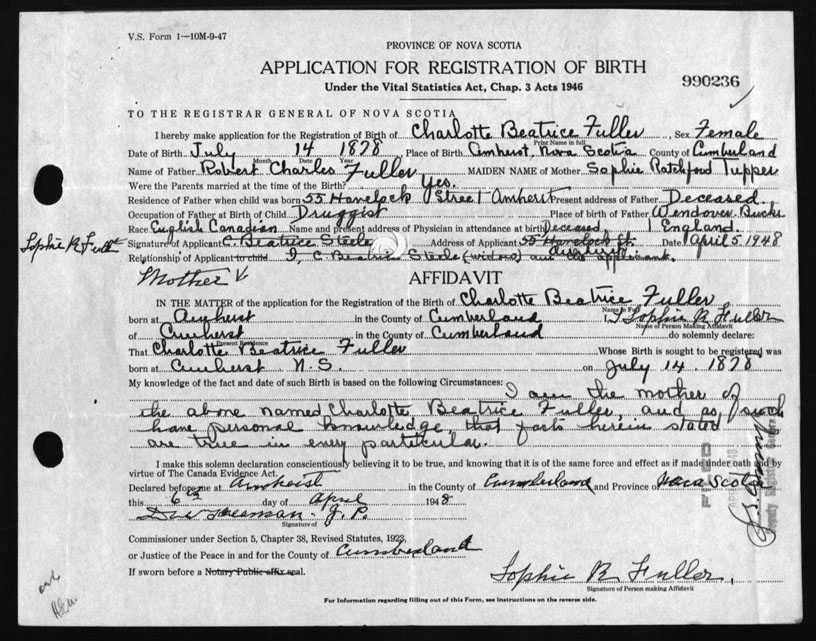 V.S. Form 1—10M-9-47
PROVINCE OF NOVA SCOTIA
APPLICATION FOR REGISTRATION OF BIRTH
990236
Under the Vital Statistics Act, Chap. 3 Acts 1946
TO THE REGISTRAR GENERAL OF NOVA SCOTIA
I hereby make application for the Registration of Birth of Charlotte Beatrice Fuller, Sex Female
Print Name in full
Date of Birth July 14 1878 Place of Birth Amherst, Nova Scotia County of Cumberland
Month Date Year
Name of Father Robert Charles Fuller MAIDEN NAME of Mother Sophie Ratchford Tupper
Were the Parents married at the time of the Birth? Yes.
Residence of Father when child was born 55 Havelock Street Amherst Present address of Father Deceased.
Occupation of Father at Birth of Child Druggist Place of birth of Father Wendover Bucks
Race English Canadian Name and present address of Physician in attendance at birth Deceased England.
Sophie R. Fuller
Signature of Applicant C. Beatrice Steele Address of Applicant 55 Havelock St. Date April 5. 1948
Relationship of Applicant to child I, C. Beatrice Steele (widow) applicant.
Mother
AFFIDAVIT
IN THE MATTER of the application for the Registration of the Birth of Charlotte Beatrice Fuller
Name in Full
born at Amherst in the County of Cumberland I, Sophie R. Fuller
Name of Person Making Affidavit
of Amherst in the County of Cumberland do solemnly declare:
Present Residence
That Charlotte Beatrice Fuller Whose Birth is sought to be registered was
born at Amherst N.S. on July 14. 1878
My knowledge of the fact and date of such Birth is based on the following Circumstances:
I am the mother of
the above named Charlotte Beatrice Fuller, and as such
have personal knowledge, that facts herein stated
are true in every particular.
I make this solemn declaration conscientiously believing it to be true, and knowing that it is of the same force and effect as if made under oath and by
virtue of The Canada Evidence Act.
Declared before me at Amherst in the County of Cumberland and Province of Nova Scotia
this 6th day of April 1948
J.P.
Signature of
Commissioner under Section 5, Chapter 38, Revised Statutes, 1923,
or Justice of the Peace in and for the County of Cumberland
If sworn before a Notary Public affix seal.
Sophie R. Fuller.
Signature of Person making Affidavit
For Information regarding filling out of this Form, see instructions on the reverse side.
FILED